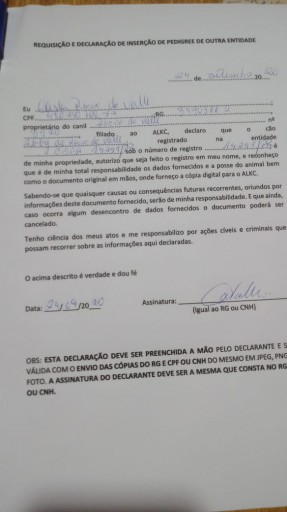 REQUISIÇÃO E DECLARAÇÃO DE INSERÇÃO DE PEDIGREE DE OUTRA ENTIDADE
24 de setembro 20 20
Eu
CPF RG
proprietário do canil nº
filiado ao ALKC, declaro que o cão
registrado na entidade
sob o número de registro é
de minha propriedade, autorizo que seja feito o registro em meu nome, e reconheço
que é de minha total responsabilidade os dados fornecidos e a posse do animal bem
como o documento original em mãos, onde forneço a cópia digital para o ALKC.
Sabendo-se que quaisquer causas ou consequências futuras recorrentes, oriundos por
informações deste documento fornecido, serão de minha responsabilidade. E que ainda,
caso ocorra algum desencontro de dados fornecidos o documento poderá ser
cancelado.
Tenho ciência dos meus atos e me responsabilizo por ações cíveis e criminais que
possam recorrer sobre as informações aqui declaradas.
O acima descrito é verdade e dou fé
Data: 24/09/20 20 Assinatura:
(Igual ao RG ou CNH)
OBS: ESTA DECLARAÇÃO DEVE SER PREENCHIDA A MÃO PELO DECLARANTE E S
VÁLIDA COM O ENVIO DAS CÓPIAS DO RG E CPF OU CNH DO MESMO EM JPEG, PNG
FOTO. A ASSINATURA DO DECLARANTE DEVE SER A MESMA QUE CONSTA NO RG
OU CNH.